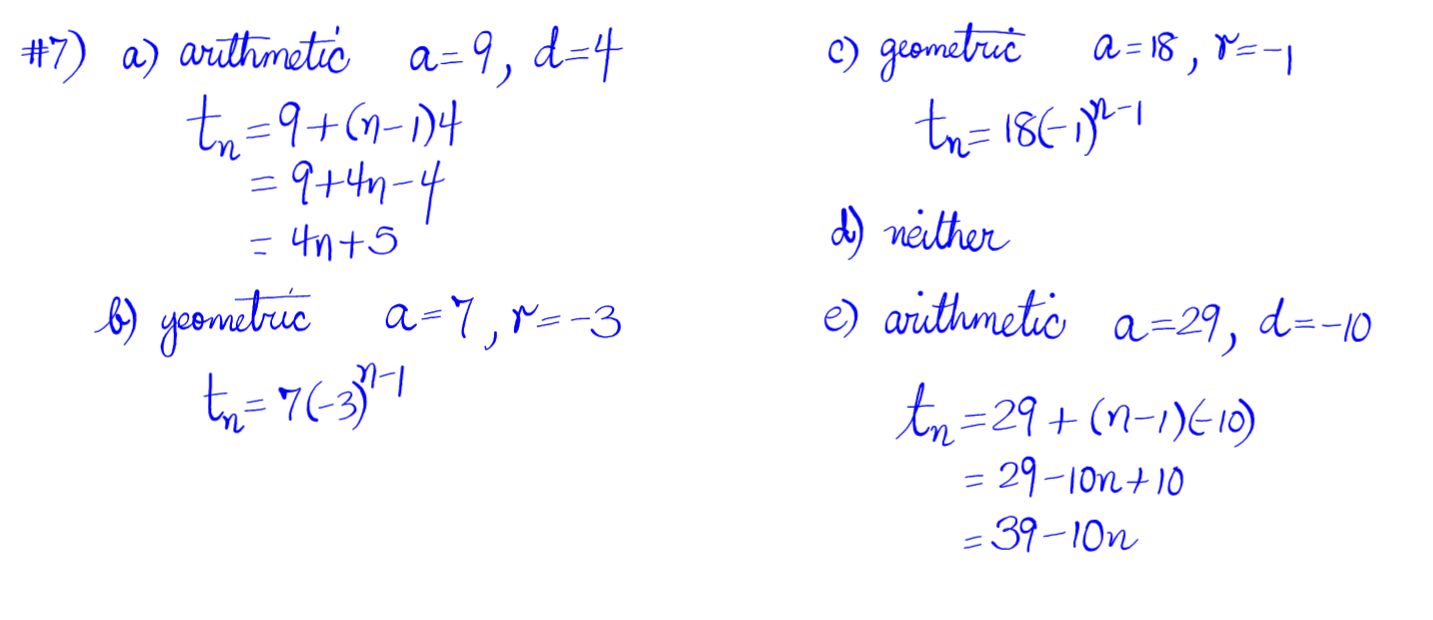 #7) a) arithmetic a=9, d=4
tn = 9+(n-1)4
= 9+4n-4
= 4n+5
b) geometric a=7, r=-3
tn = 7(-3)^n-1
c) geometric a=18, r=-1
tn = 18(-1)^n-1
d) neither
e) arithmetic a=29, d=-10
tn = 29+(n-1)(-10)
= 29-10n+10
= 39-10n